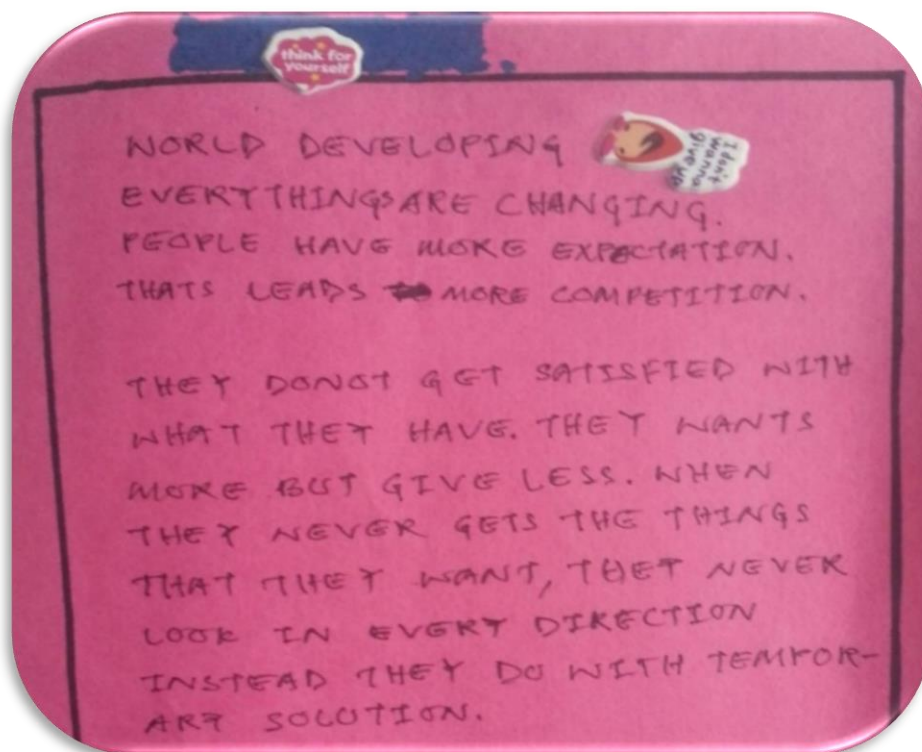 think for
yourself
WORLD DEVELOPING
I don't
wanna
give up
EVERYTHINGS ARE CHANGING.
PEOPLE HAVE MORE EXPECTATION.
THATS LEADS MORE COMPETITION.
THEY DONOT GET SATISFIED WITH
WHAT THEY HAVE. THEY WANTS
MORE BUT GIVE LESS. WHEN
THEY NEVER GETS THE THINGS
THAT THEY WANT, THEY NEVER
LOOK IN EVERY DIRECTION
INSTEAD THEY DO WITH TEMPOR-
ARY SOLUTION.